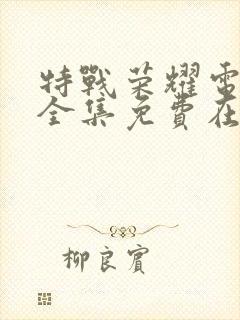 特戰荣耀電
全集免費在
柳良賓